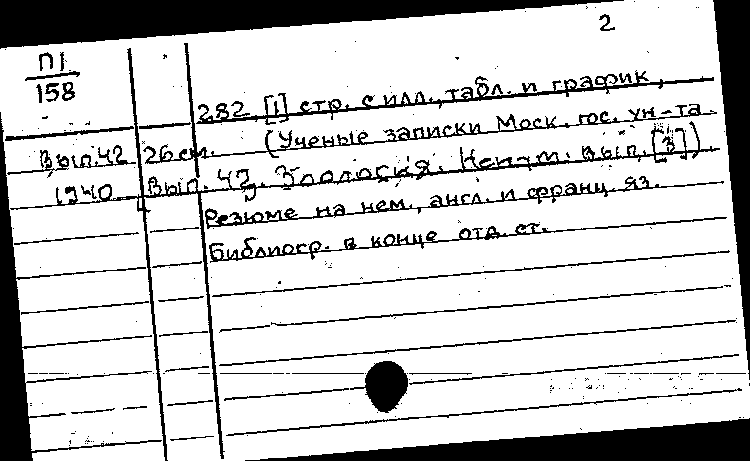 2
П1
158
282, [1] стр. с илл., табл. и график.,
Вып. 42 26 см. (Ученые записки Моск. гос. ун-та.
1940 Вып. 42. Зоология. вып. [3]).
Резюме на нем., англ. и франц. яз.
Библиогр. в конце отд. ст.